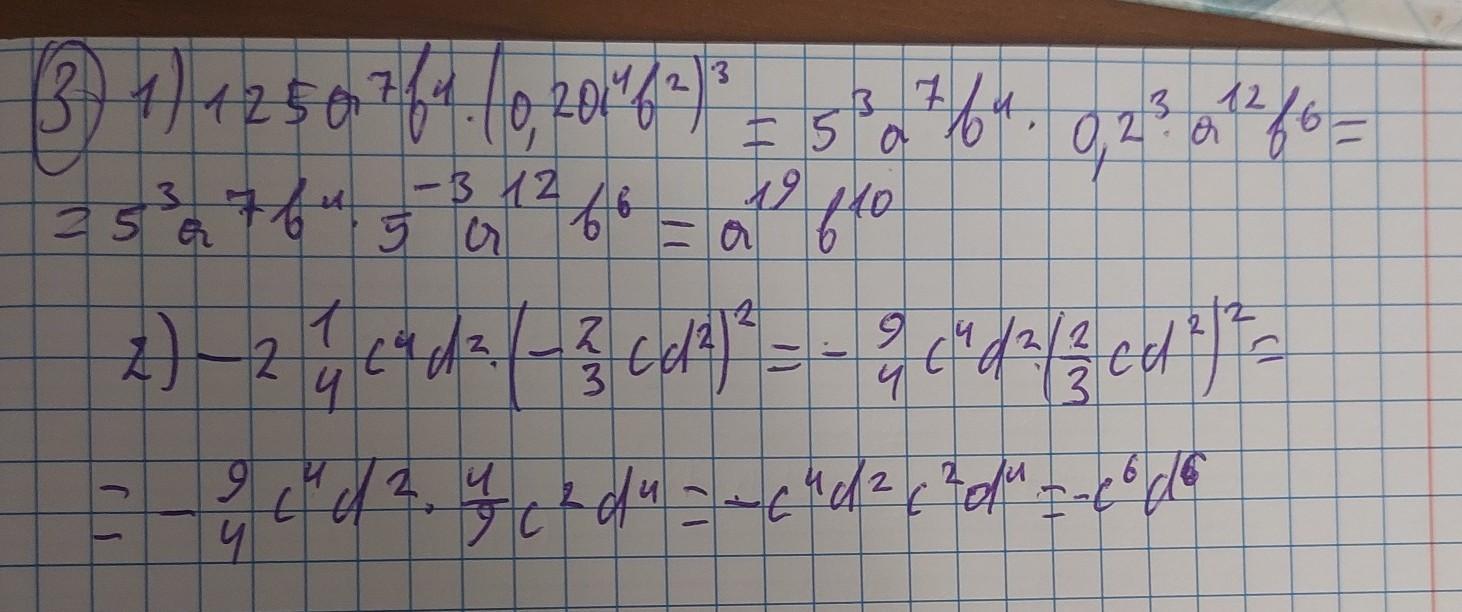 3) 1) 125a⁷b⁴·(0,2a⁴b²)³ = 5³a⁷b⁴· 0,2³·a¹²b⁶ =
= 5³a⁷b⁴·5⁻³a¹²b⁶ = a¹⁹b¹⁰
2) -2 1/4 c⁴d²·(-2/3 cd²)² = - 9/4 c⁴d²·(2/3 cd²)² =
= - 9/4 c⁴d²· 4/9 c²d⁴ = -c⁴d²c²d⁴ = -c⁶d⁶